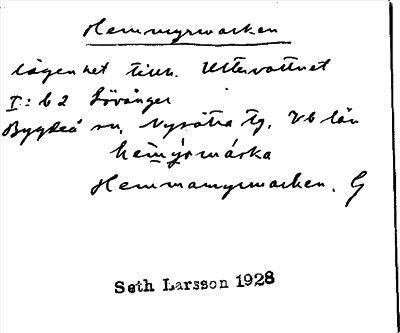 Hemmyrmarken
lägenhet tillh. Uttervattnet
I: b 2 Lövånger
Bygdeå sn, Nysätra tg, Vb län
hemyrmarka
Hemmamyrmarken. G
Seth Larsson 1928